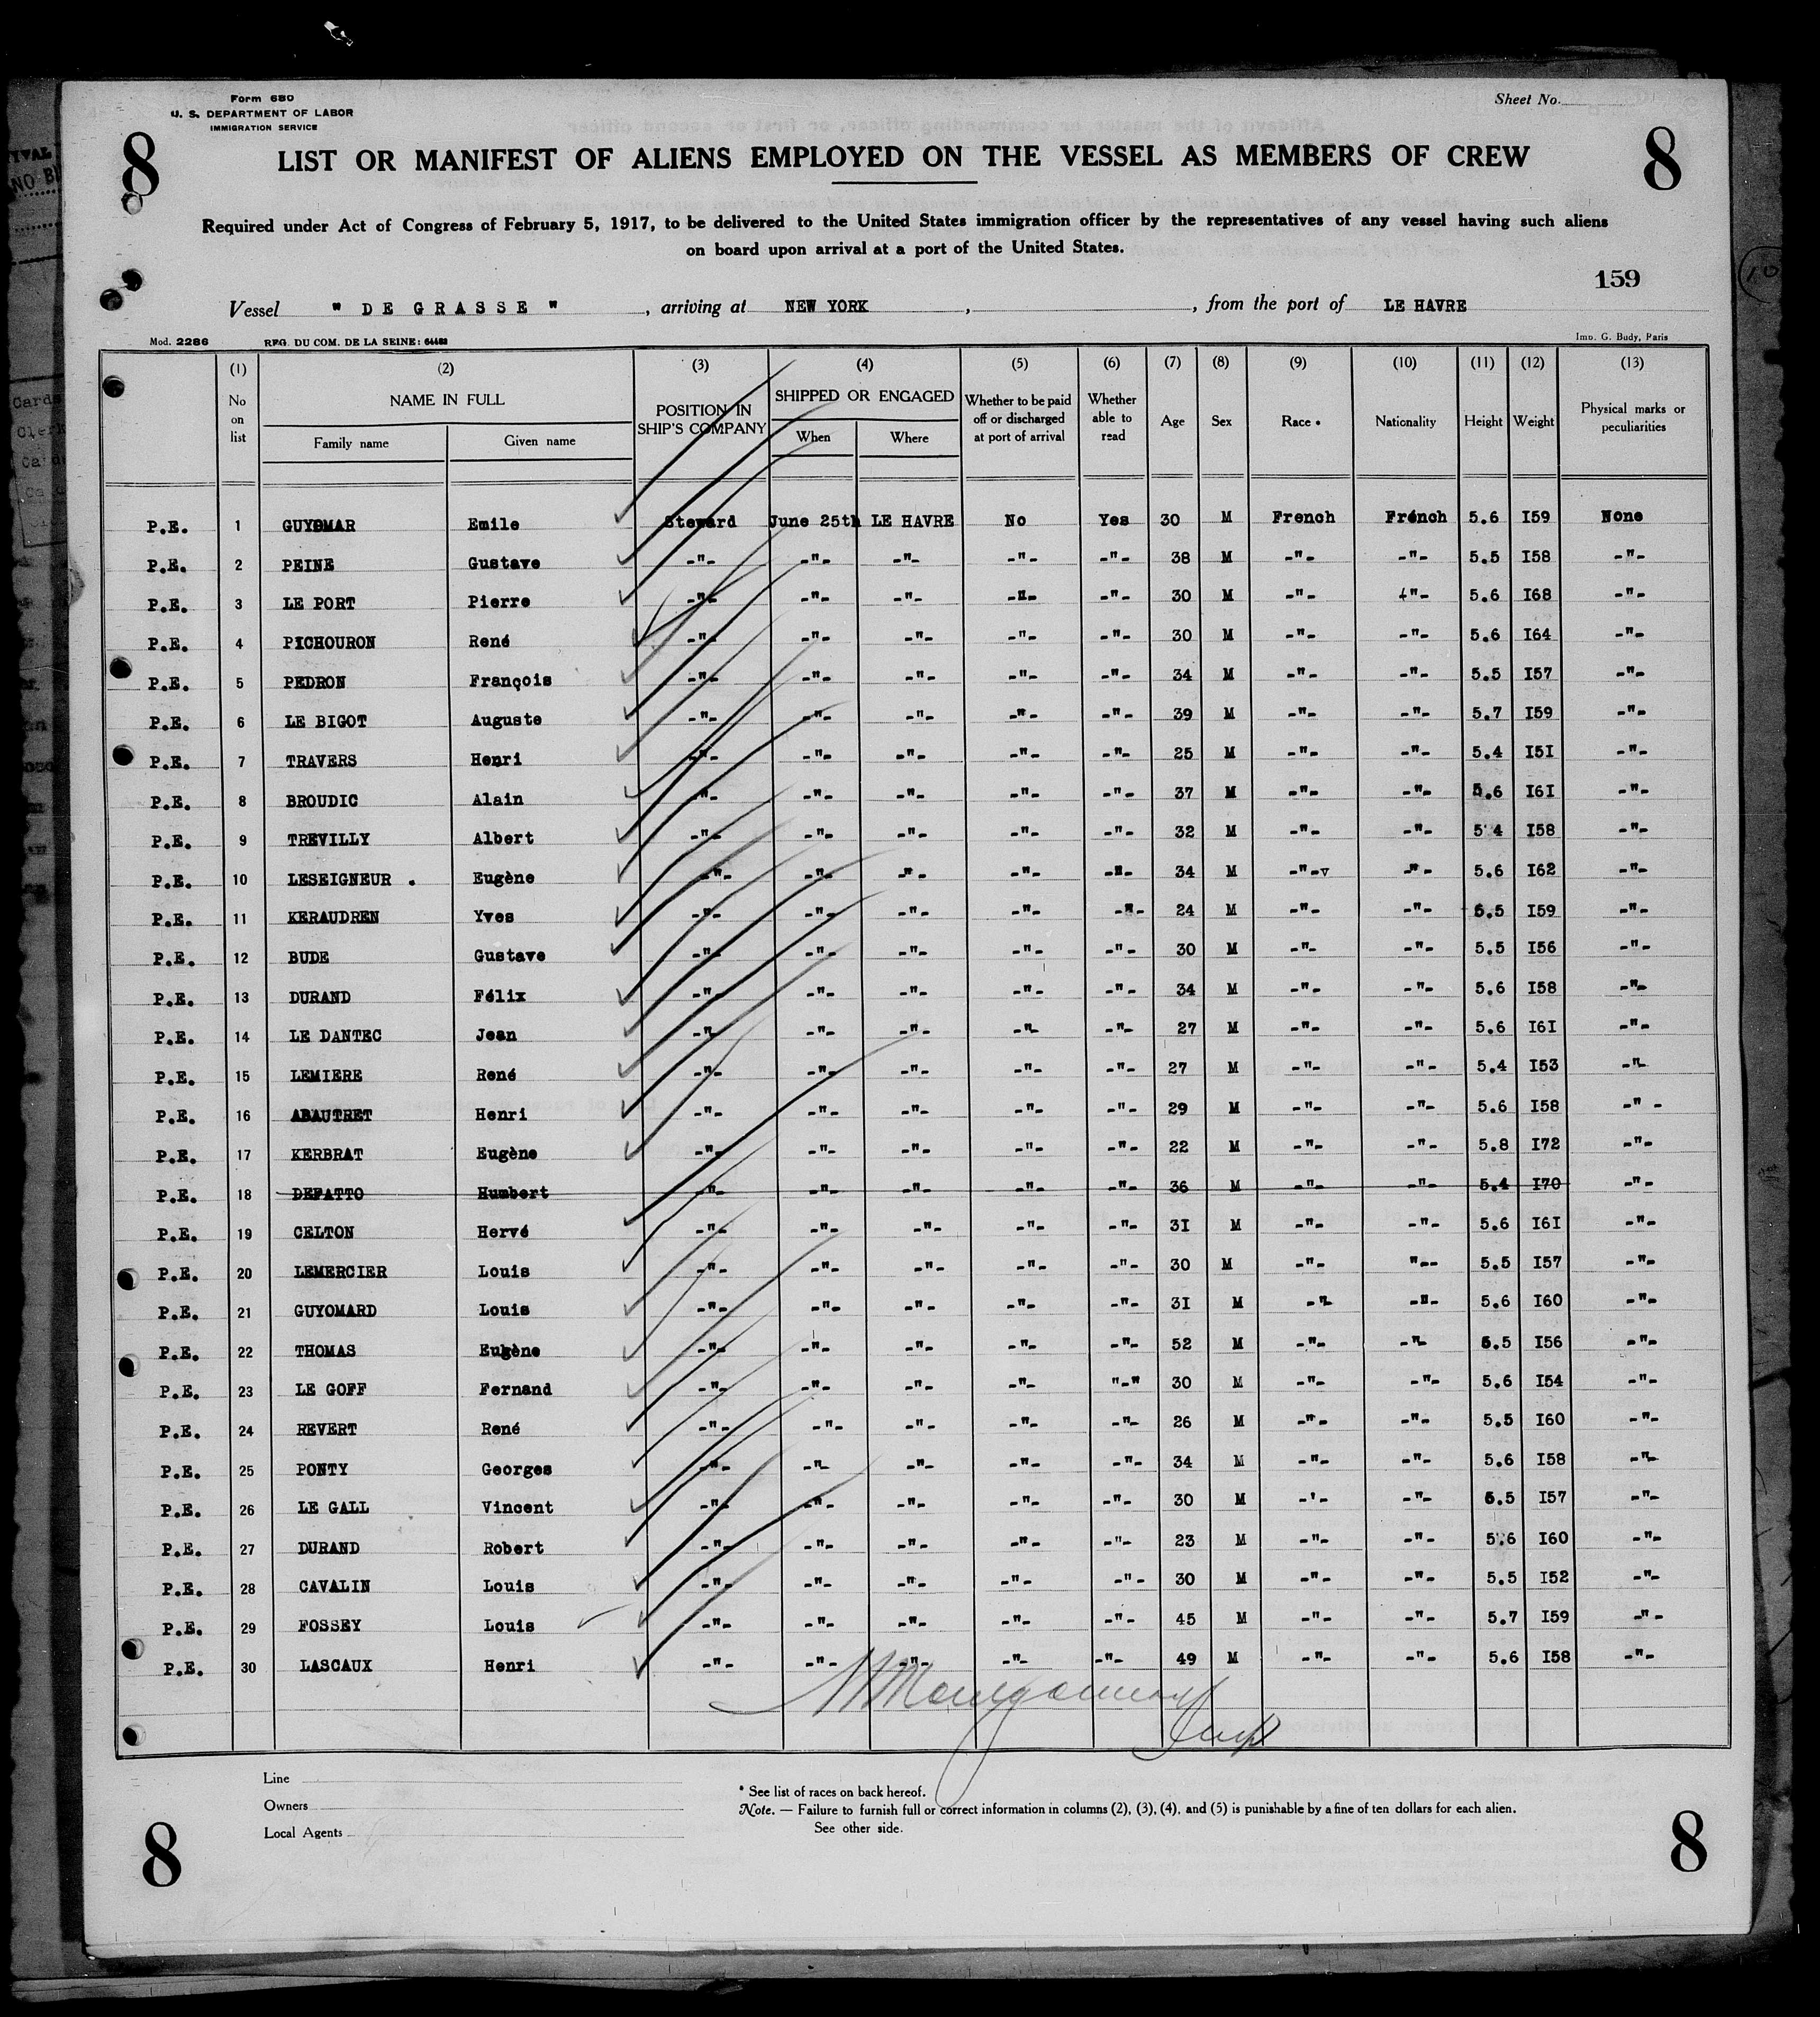 Form 680
U. S. DEPARTMENT OF LABOR
IMMIGRATION SERVICE
Sheet No.
8 8
LIST OR MANIFEST OF ALIENS EMPLOYED ON THE VESSEL AS MEMBERS OF CREW
Required under Act of Congress of February 5, 1917, to be delivered to the United States immigration officer by the representatives of any vessel having such aliens
on board upon arrival at a port of the United States.
159
Vessel " DE GRASSE " , arriving at NEW YORK , , from the port of LE HAVRE
Mod. 2286 REG. DU COM. DE LA SEINE: Imp. G. Budy, Paris
(1) (2) (3) (4) (5) (6) (7) (8) (9) (10) (11) (12) (13)
No on list NAME IN FULL Family name Given name POSITION IN SHIP'S COMPANY SHIPPED OR ENGAGED When Where Whether to be paid off or discharged at port of arrival Whether able to read Age Sex Race * Nationality Height Weight Physical marks or peculiarities
P.E. 1 GUYOMAR Emile Steward June 25th LE HAVRE No Yes 30 M French French 5.6 I59 None
P.E. 2 PEINE Gustave -"- -"- -"- -"- -"- 38 M -"- -"- 5.5 I58 -"-
P.E. 3 LE PORT Pierre -"- -"- -"- -"- -"- 30 M -"- -"- 5.6 I68 -"-
P.E. 4 PICHOURON René -"- -"- -"- -"- -"- 30 M -"- -"- 5.6 I64 -"-
P.E. 5 PEDRON François -"- -"- -"- -"- -"- 34 M -"- -"- 5.5 I57 -"-
P.E. 6 LE BIGOT Auguste -"- -"- -"- -"- -"- 39 M -"- -"- 5.7 I59 -"-
P.E. 7 TRAVERS Henri -"- -"- -"- -"- -"- 25 M -"- -"- 5.4 I5I -"-
P.E. 8 BROUDIC Alain -"- -"- -"- -"- -"- 37 M -"- -"- 5.6 I6I -"-
P.E. 9 TREVILLY Albert -"- -"- -"- -"- -"- 32 M -"- -"- 5'4 I58 -"-
P.E. 10 LESEIGNEUR . Eugène -"- -"- -"- -"- -"- 34 M -"- -"- 5.6 I62 -"-
P.E. 11 KERAUDREN Yves -"- -"- -"- -"- -"- 24 M -"- -"- 5.5 I59 -"-
P.E. 12 BUDE Gustave -"- -"- -"- -"- -"- 30 M -"- -"- 5.5 I56 -"-
P.E. 13 DURAND Félix -"- -"- -"- -"- -"- 34 M -"- -"- 5.6 I58 -"-
P.E. 14 LE DANTEC Jean -"- -"- -"- -"- -"- 27 M -"- -"- 5.6 I6I -"-
P.E. 15 LEMIERE René -"- -"- -"- -"- -"- 27 M -"- -"- 5.4 I53 -"-
P.E. 16 ABAUTRET Henri -"- -"- -"- -"- -"- 29 M -"- -"- 5.6 I58 -"-
P.E. 17 KERBRAT Eugène -"- -"- -"- -"- -"- 22 M -"- -"- 5.8 I72 -"-
P.E. 18 DEFATTO Humbert -"- -"- -"- -"- -"- 36 M -"- -"- 5.4 I70 -"-
P.E. 19 CELTON Hervé -"- -"- -"- -"- -"- 3I M -"- -"- 5.6 I6I -"-
P.E. 20 LEMERCIER Louis -"- -"- -"- -"- -"- 30 M -"- "-- 5.5 I57 -"-
P.E. 21 GUYOMARD Louis -"- -"- -"- -"- -"- 3I M -"- -"- 5.6 I60 -"-
P.E. 22 THOMAS Eugène -"- -"- -"- -"- -"- 52 M -"- -"- 5.5 I56 -"-
P.E. 23 LE GOFF Fernand -"- -"- -"- -"- "-" 30 M -"- -"- 5.6 I54 -"-
P.E. 24 REVERT René -"- -"- -"- -"- -"- 26 M -"- -"- 5.5 I60 -"-
P.E. 25 PONTY Georges -"- -"- -"- -"- -"- 34 M -"- -"- 5.6 I58 -"-
P.E. 26 LE GALL Vincent -"- -"- -"- -"- -"- 30 M -'- -"- 5.5 I57 -"-
P.E. 27 DURAND Robert -"- -"- -"- -"- -"- 23 M -"- -"- 5.6 I60 -"-
P.E. 28 CAVALIN Louis -"- -"- -"- -"- -"- 30 M -"- -"- 5.5 I52 -"-
P.E. 29 FOSSEY Louis -"- -"- -"- -"- -"- 45 M -"- -"- 5.7 I59 -"-
P.E. 30 LASCAUX Henri -"- -"- -"- -"- -"- 49 M -"- -"- 5.6 I58 -"-
Line
Owners
Local Agents
* See list of races on back hereof.
Note. — Failure to furnish full or correct information in columns (2), (3), (4), and (5) is punishable by a fine of ten dollars for each alien.
See other side.
8 8